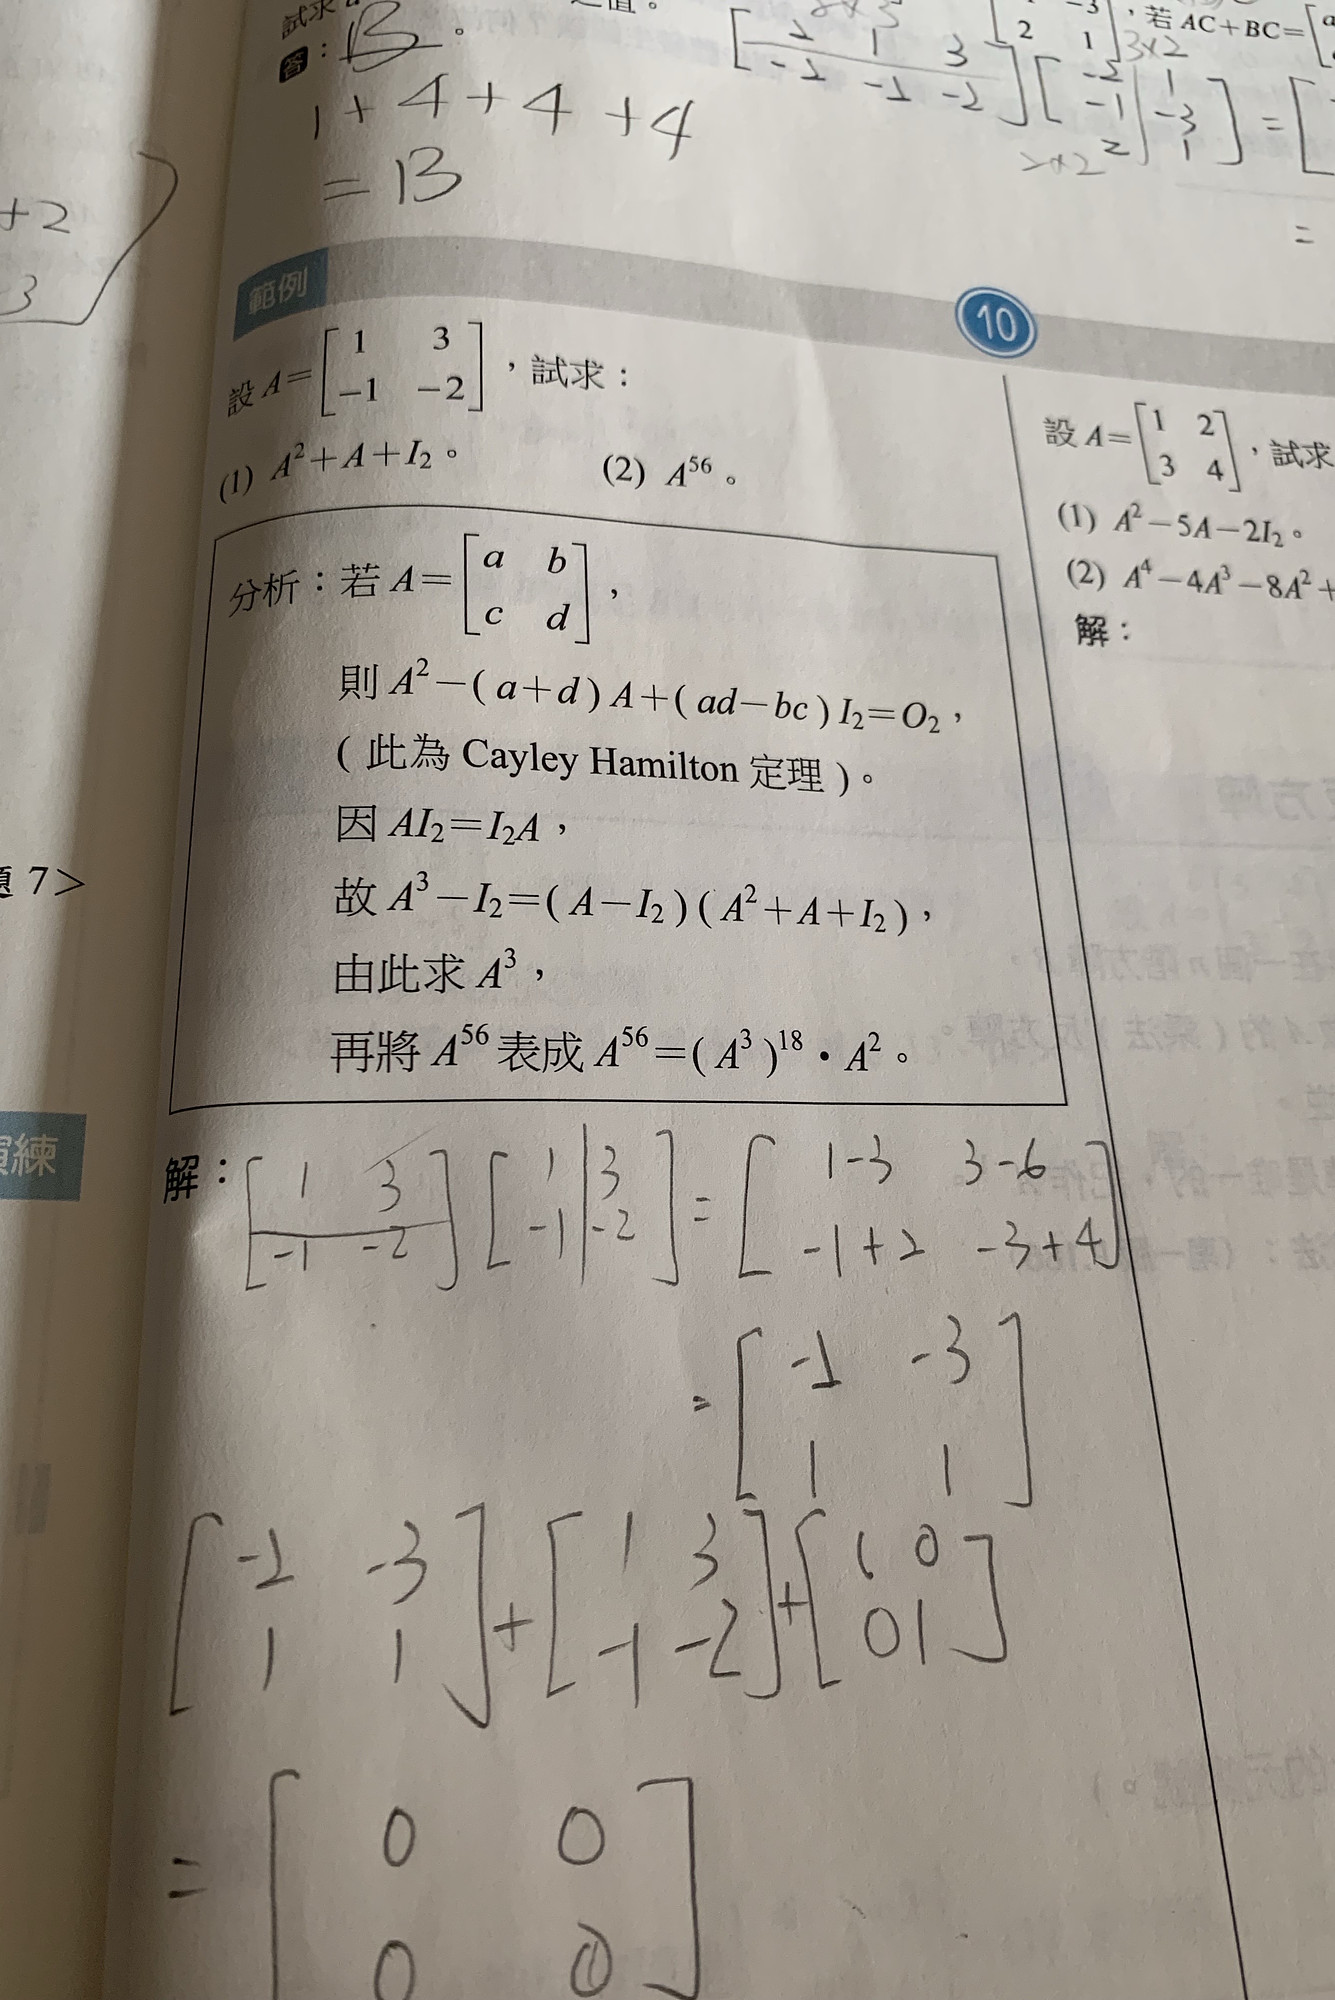 試求
答：13。
1+4+4+4
=13
[2 1 3
-1 -1 -2][-2 1
-1 -3
2 1]=[
3×2
2×2
，若 AC+BC=
+2
3
題 7>
演練
範例 10
設 A=[1 3
-1 -2]，試求：
(1) A²+A+I₂。 (2) A⁵⁶。
分析：若 A=[a b
c d]，
則 A²-(a+d)A+(ad-bc)I₂=O₂，
(此為 Cayley Hamilton 定理)。
因 AI₂=I₂A，
故 A³-I₂=(A-I₂)(A²+A+I₂)，
由此求 A³，
再將 A⁵⁶ 表成 A⁵⁶=(A³)¹⁸·A²。
解：[1 3
-1 -2][1 3
-1 -2]=[1-3 3-6
-1+2 -3+4]
=[-2 -3
1 1]
[-2 -3
1 1]+[1 3
-1 -2]+[1 0
0 1]
=[0 0
0 0]
設 A=[1 2
3 4]，試求
(1) A²-5A-2I₂。
(2) A⁴-4A³-8A²+
解：